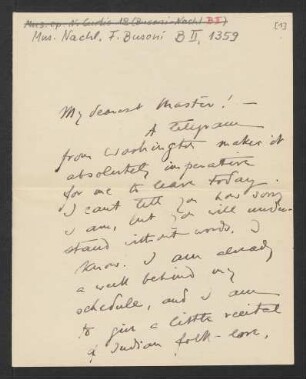 Mus. ep. N. Curtis 18 (Busoni-Nachl. B II)
[1]
Mus. Nachl. F. Busoni B II, 1359
My dearest Master! –
A telegram
from Washington makes it
absolutely imperative
for me to leave today.
I can't tell you how sorry
I am, but you will under-
stand without words, I
know. I am already
a week behind my
schedule, and I am
to give a little recital
of Indian folk-lore,